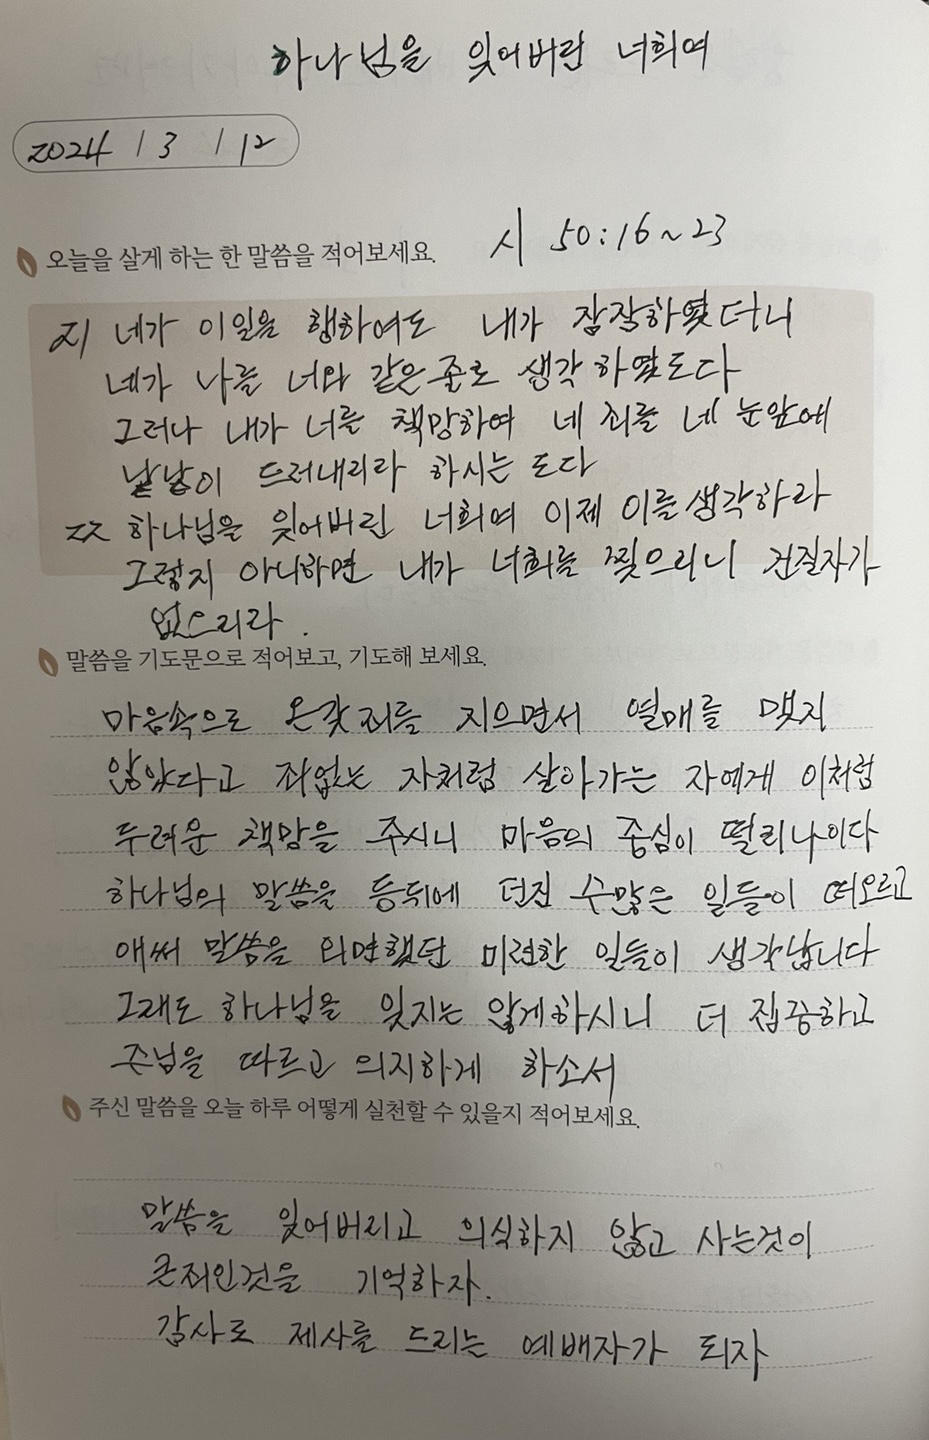 하나님을 잊어버린 너희여
2024 / 3 / 12
시 50:16~23
오늘을 살게 하는 한 말씀을 적어보세요.
21 네가 이일을 행하여도 내가 잠잠하였더니
네가 나를 너와 같은줄로 생각하였도다
그러나 내가 너를 책망하여 네 죄를 네 눈앞에
낱낱이 드러내리라 하시는도다
22 하나님을 잊어버린 너희여 이제 이를 생각하라
그렇지 아니하면 내가 너희를 찢으리니 건질자가
없으리라.
말씀을 기도문으로 적어보고, 기도해 보세요.
마음속으로 온갖 죄를 지으면서 열매를 맺지
않았다고 죄없는 자처럼 살아가는 자에게 이처럼
두려운 책망을 주시니 마음의 중심이 떨리나이다
하나님의 말씀을 등뒤에 던진 수많은 일들이 떠오르고
애써 말씀을 외면했던 미련한 일들이 생각납니다
그래도 하나님을 잊지는 않게하시니 더 집중하고
주님을 따르고 의지하게 하소서
주신 말씀을 오늘 하루 어떻게 실천할 수 있을지 적어보세요.
말씀을 잊어버리고 의식하지 않고 사는것이
큰죄인것을 기억하자.
감사로 제사를 드리는 예배자가 되자